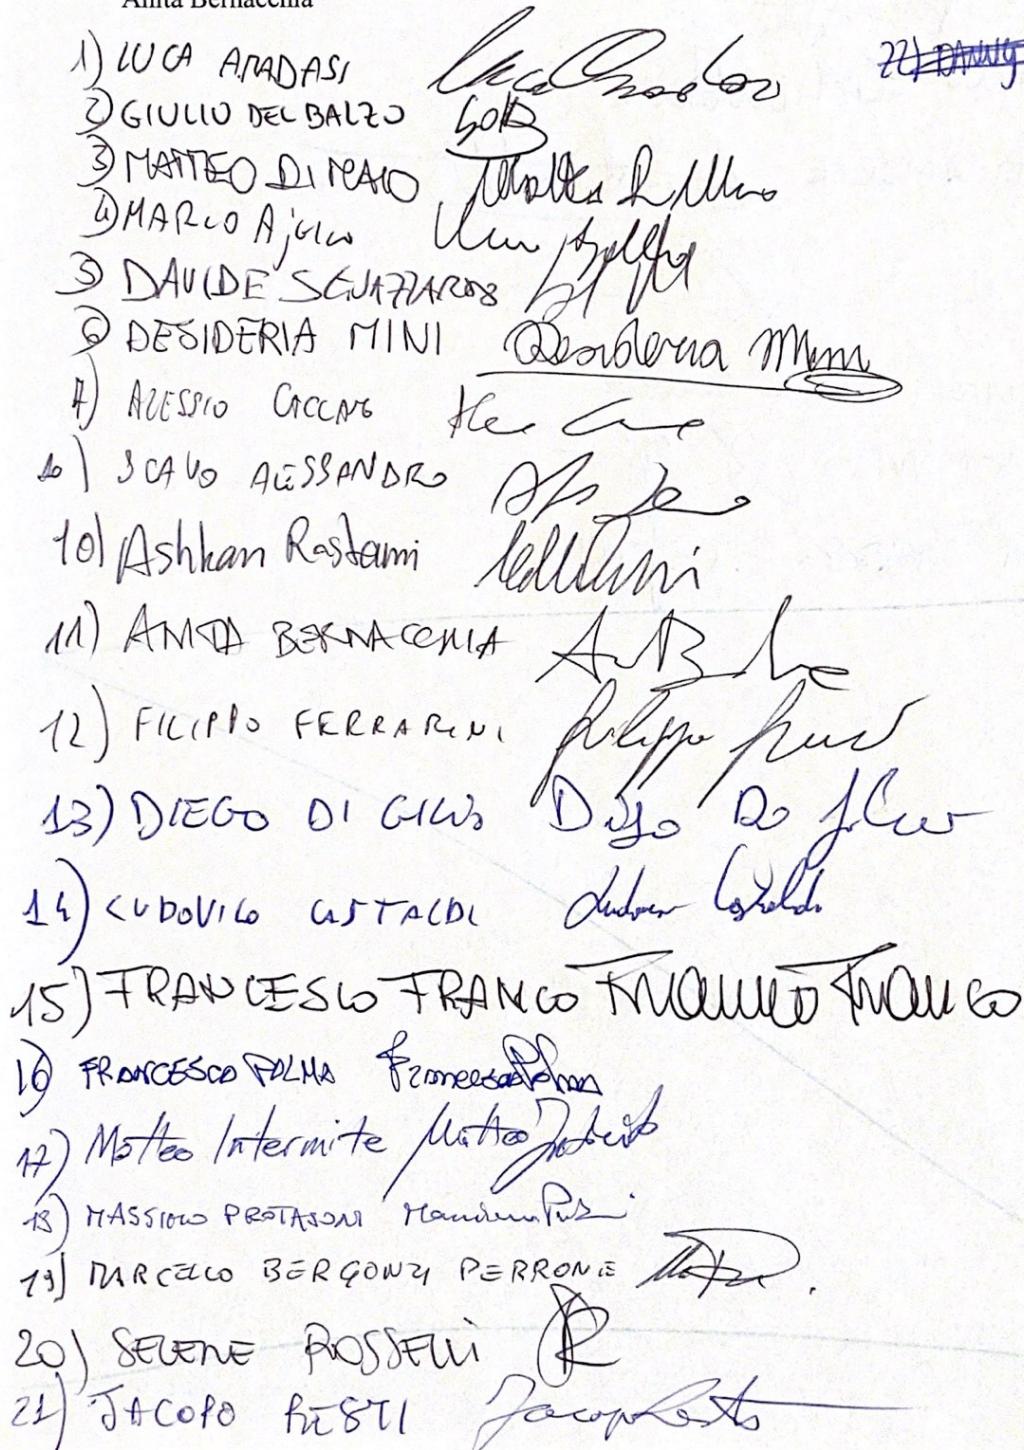 Anita Bernacchia
1) LUCA ARADASI Luca Aradasi
2) GIULIO DEL BALZO GDB
3) MATTEO DI MAIO Matteo Di Maio
4) MARCO
5) DAVIDE
6) DESIDERIA MINI Desideria Mini
7) ALESSIO
10) SCAVO ALESSANDRO
10) Ashkan Rostami
11) ANITA BERNACCHIA
12) FILIPPO FERRARINI Filippo
13) DIEGO DI
14) LUDOVICO CASTALDI Ludovico Castaldi
15) FRANCESCO FRANCO Francesco Franco
16) FRANCESCO POLMA Francesco Polma
17) Matteo Intermite Matteo Intermite
18) MASSIMO PROTASONI
19) MARCELLO BERGONZI PERRONE
20) SELENE ROSSELLI
21) JACOPO RESTI Jacopo Resti
22) DANNY